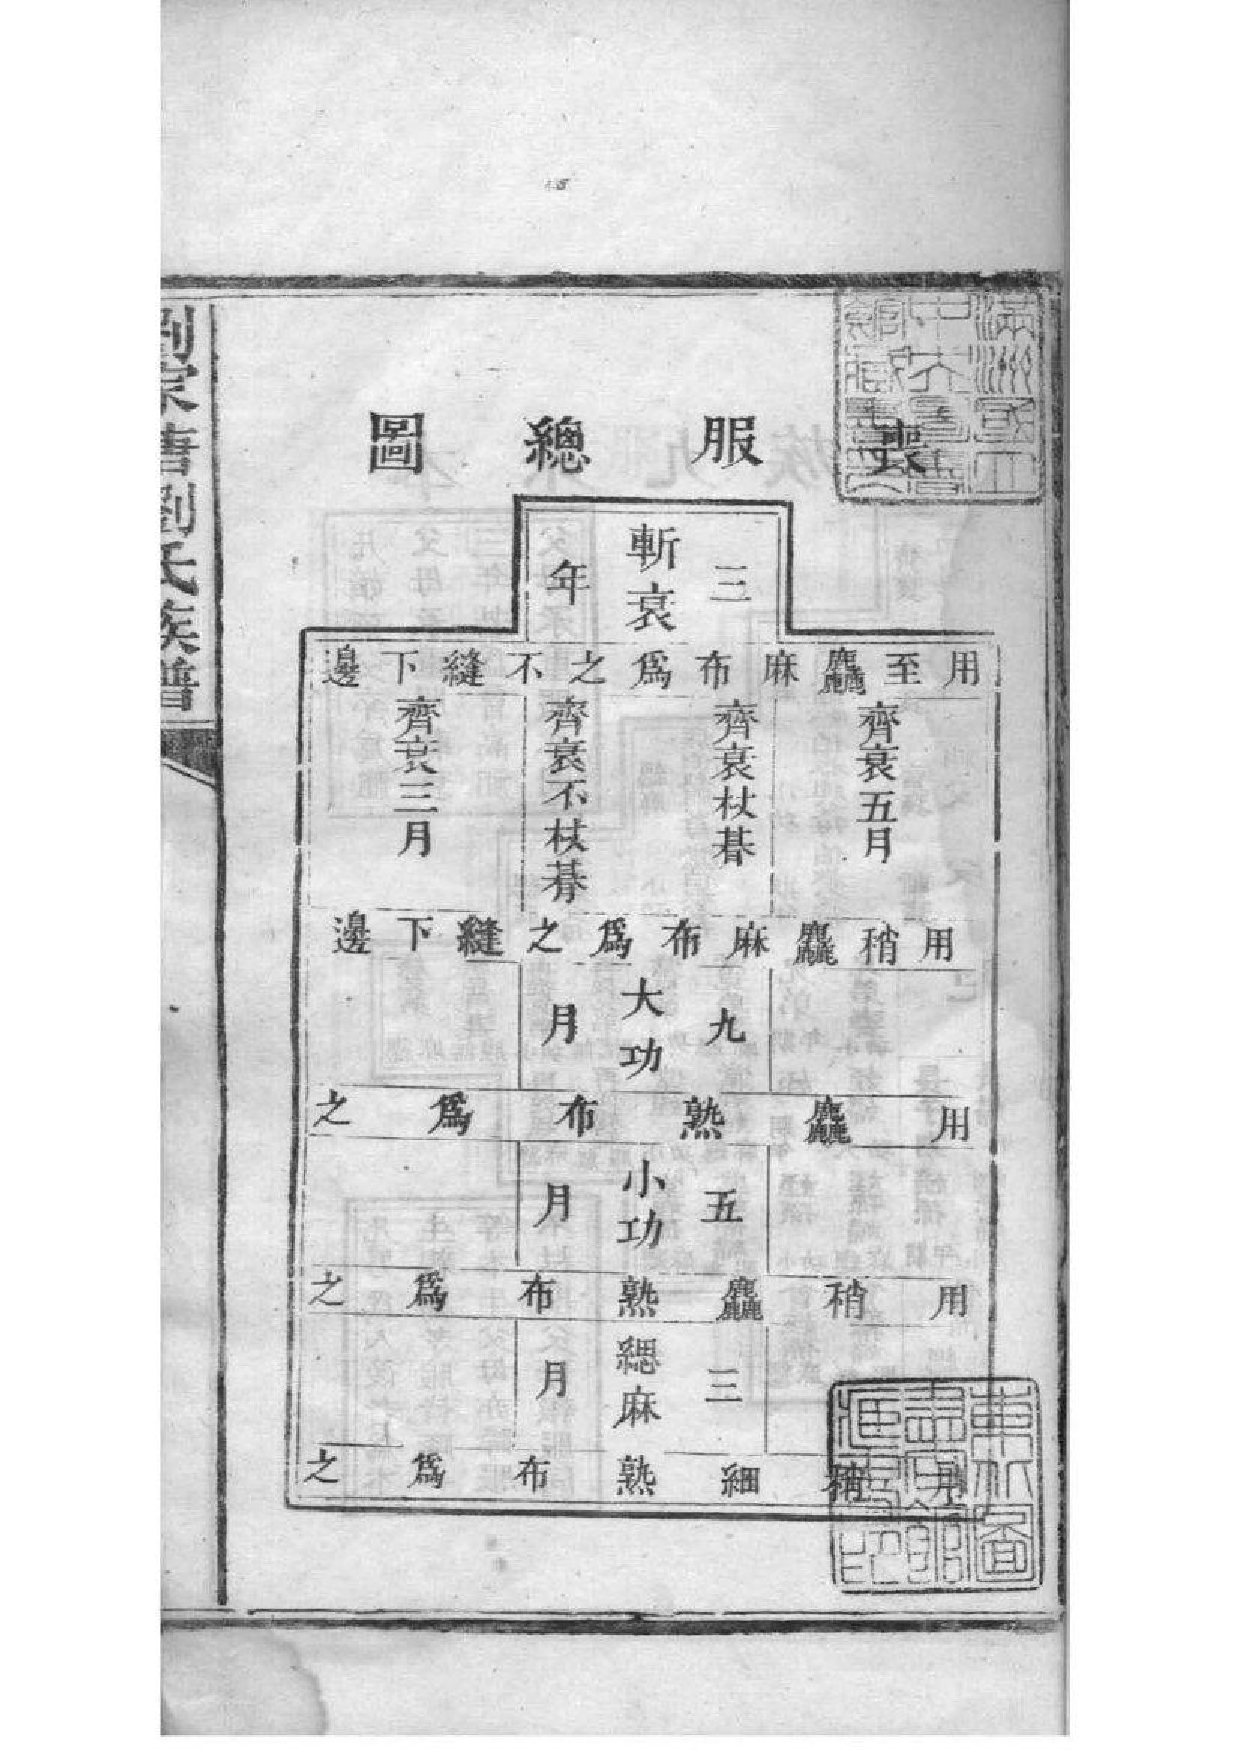 喪服總圖
三斬衰年
用至麤麻布爲之不縫下邊
齊衰五月
齊衰杖朞
齊衰不杖朞
齊衰三月
用稍麤麻布爲之縫下邊
九大功月
用麤熟布爲之
五小功月
用稍麤熟布爲之
三緦麻月
用稍細熟布爲之
劉宗唐劉氏族譜
滿洲國立
中央圖書
館藏書